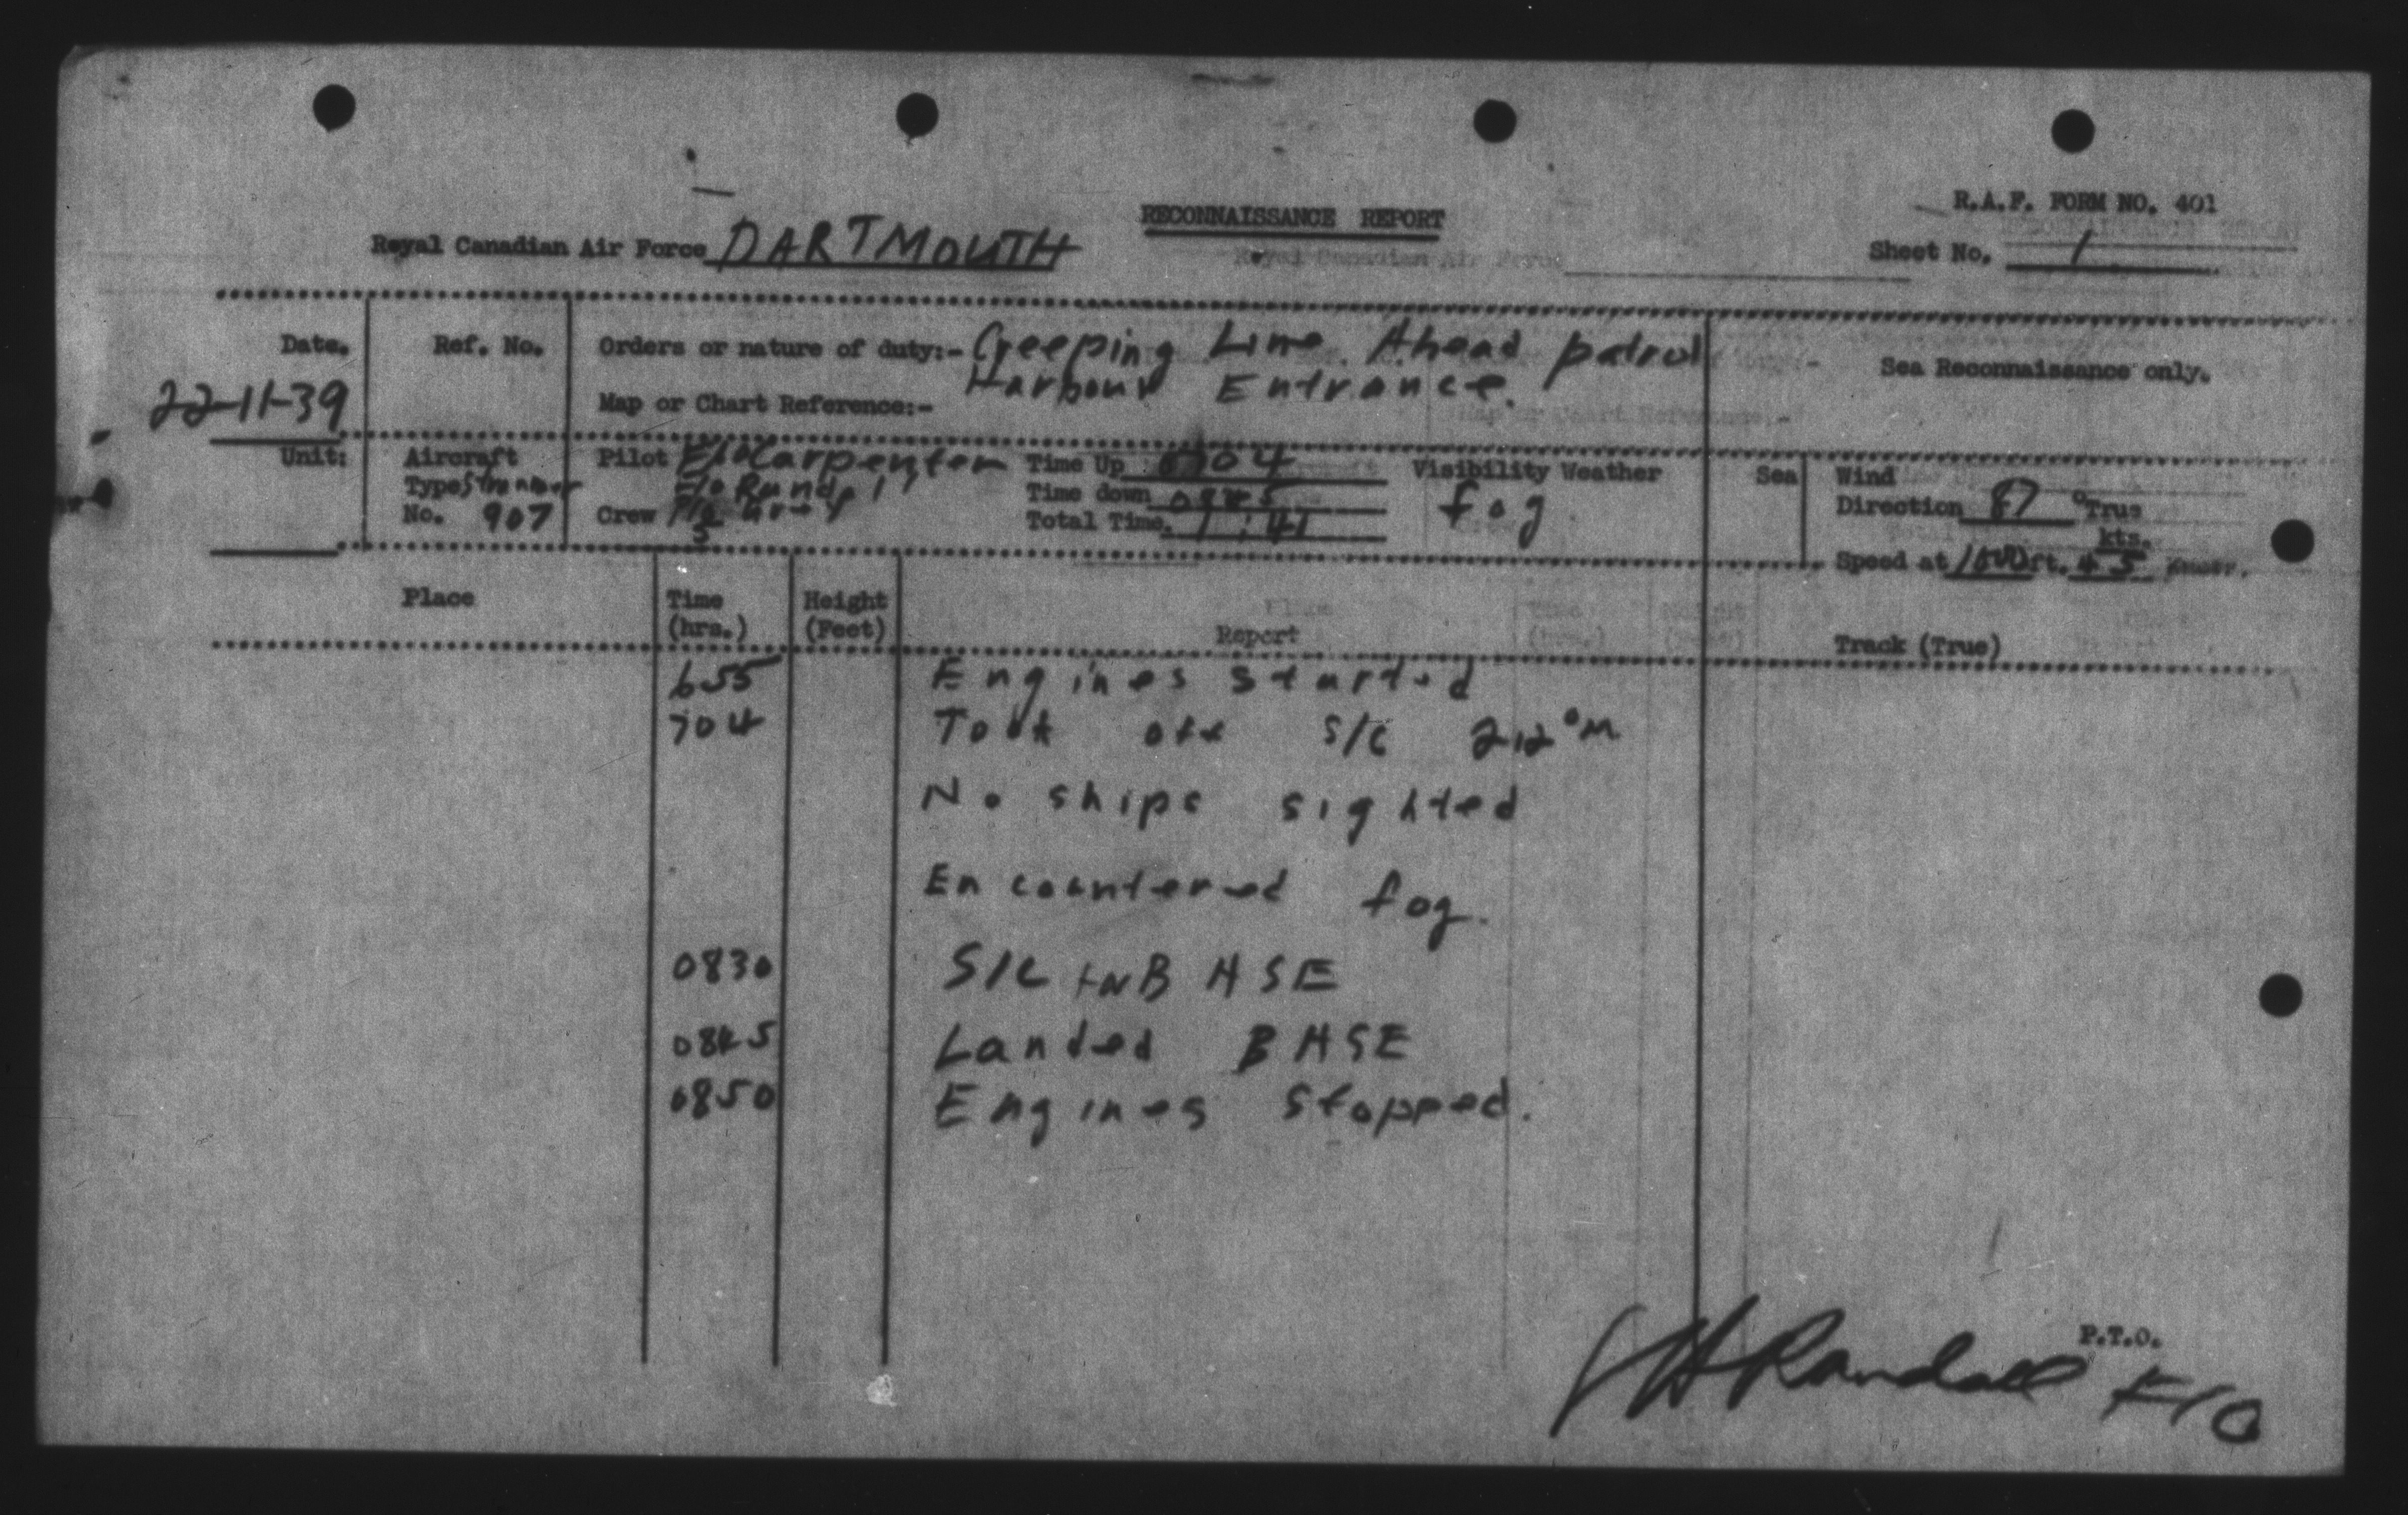 R.A.F. FORM NO. 401
RECONNAISSANCE REPORT
Royal Canadian Air Force DARTMOUTH
Sheet No. 1
Date. Ref. No. Orders or nature of duty:- Creeping Line Ahead patrol
Harbour Entrance.
Sea Reconnaissance only.
22-11-39
Map or Chart Reference:-
Unit: Aircraft Pilot F/O Carpenter Time Up 0704 Visibility Weather Sea Wind
Type Stranraer F/O Randall Time down 0845 fog Direction 87 °True
No. 907 Crew Gray Total Time. 1:41
5
kts.
Speed at 1000 ft. 45
Place Time Height Report Track (True)
(hrs.) (Feet)
655 Engines started
704 Took off S/C 212°M
No ships sighted
Encountered fog.
0830 S/C BASE
0845 Landed BASE
0850 Engines stopped.
P.T.O.
Randall F/O